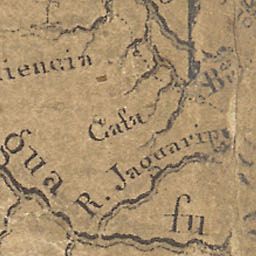 iencin
Cafa
gua
R. Jaguarip
fu